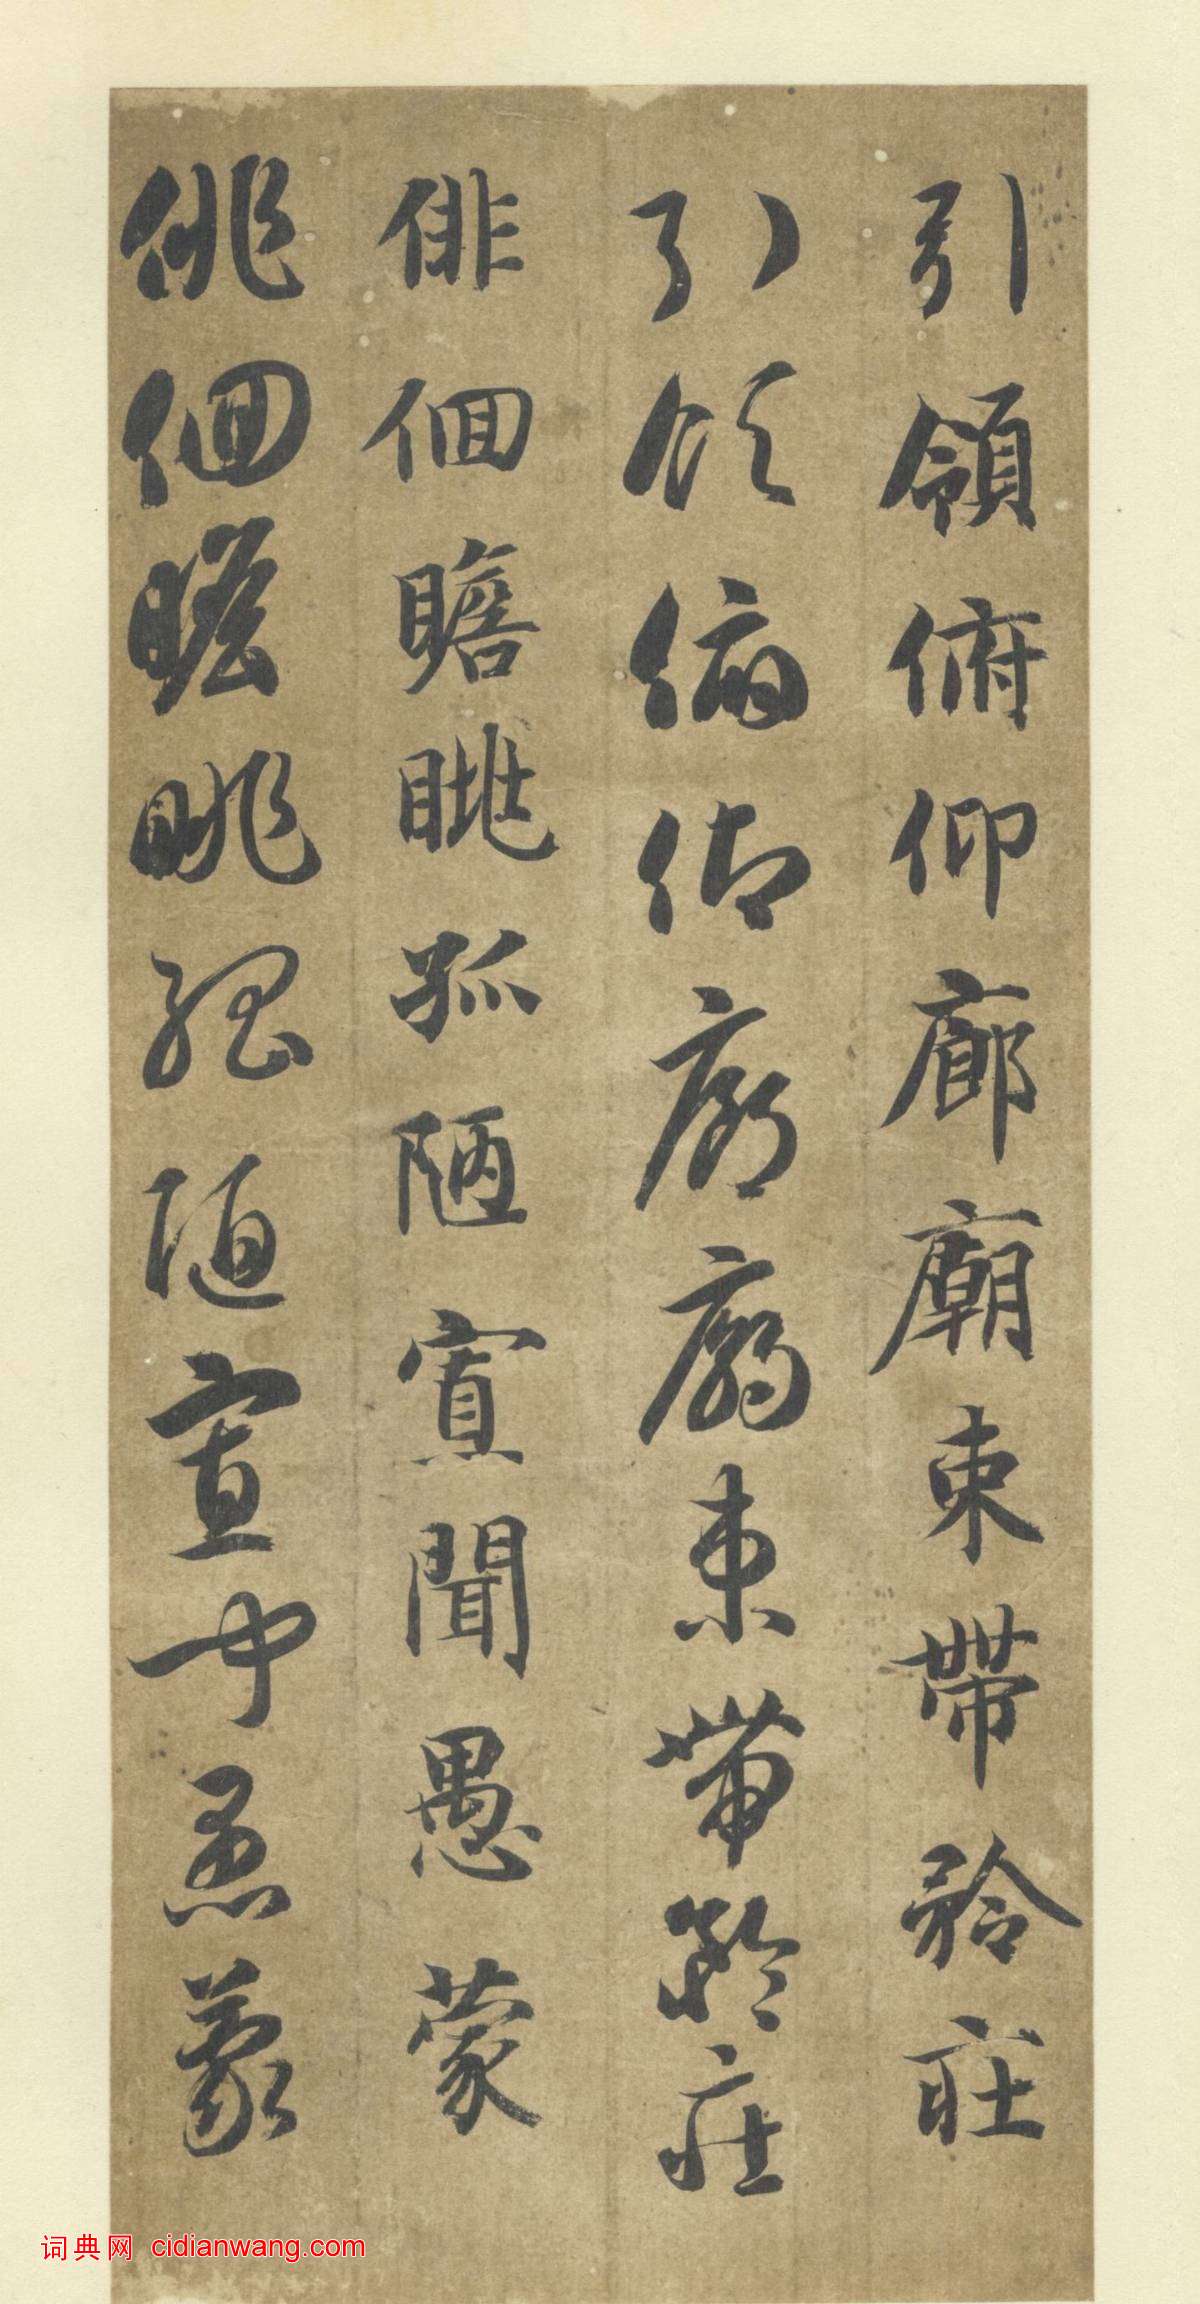 引領俯仰廊廟束帶矜莊
引領俯仰廊廟束帶矜莊
俳佪瞻眺孤陋寡聞愚蒙
俳佪瞻眺孤陋寡聞愚蒙
词典网 cidianwang.com